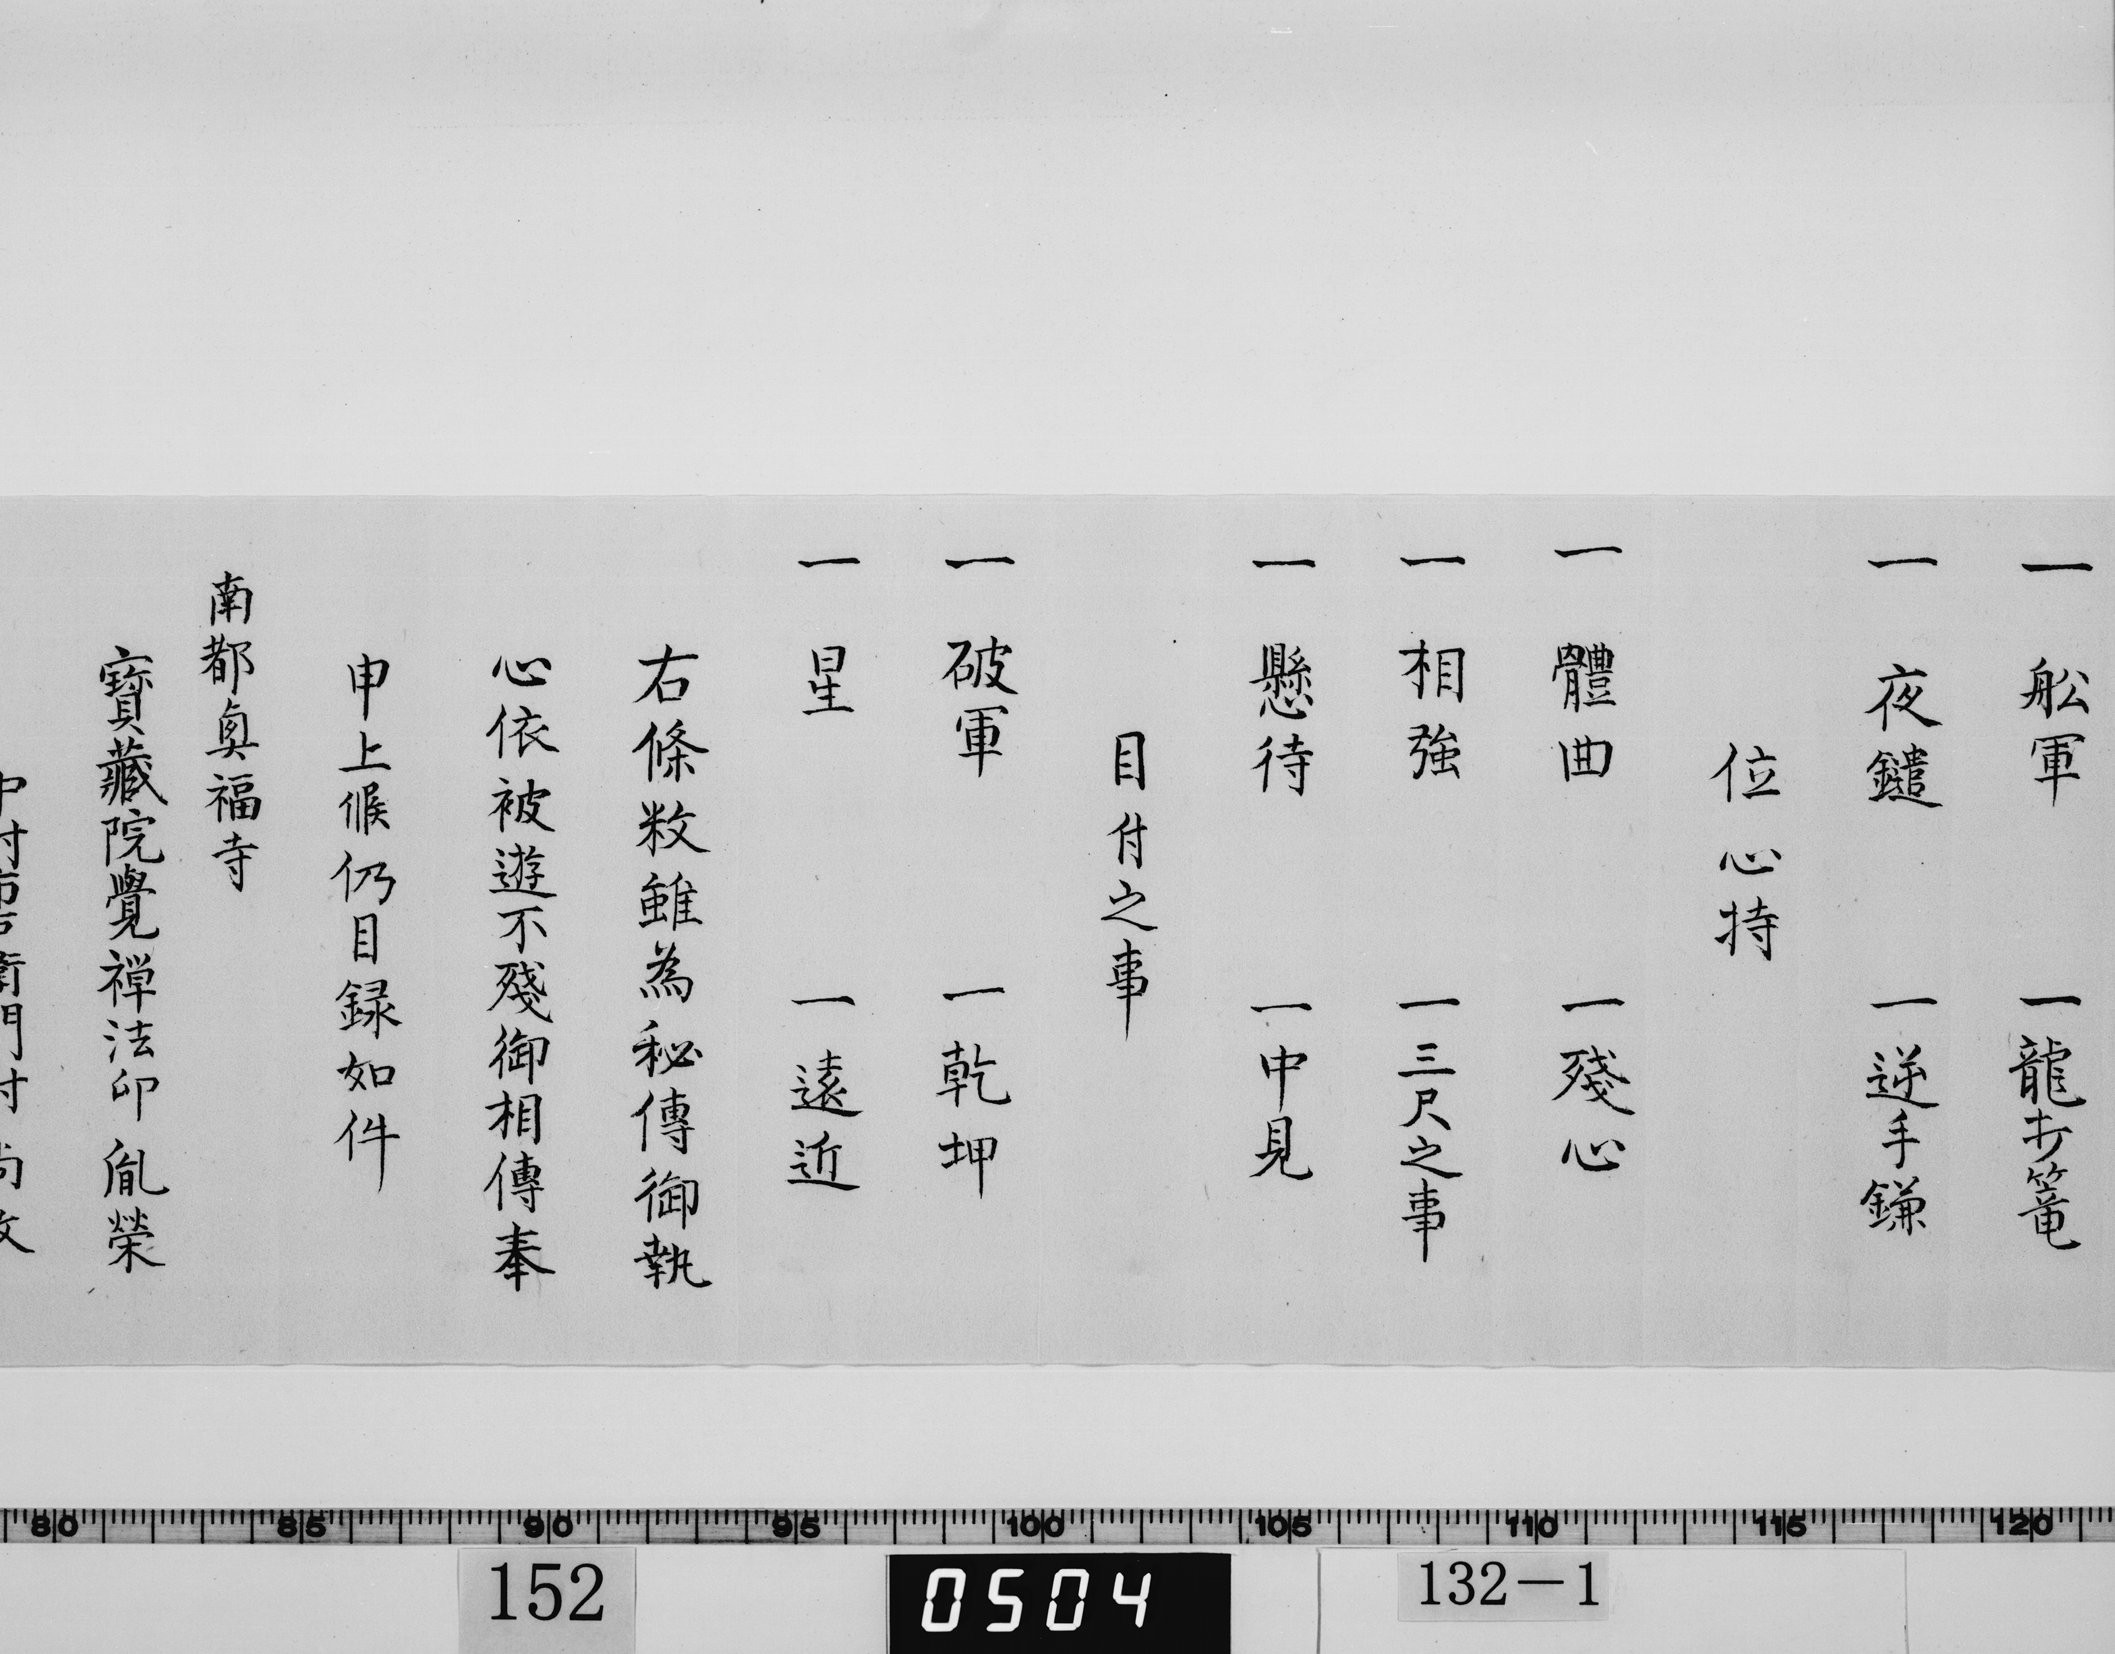 一 舩軍 一龍打篭
一 夜鑓 一逆手鎌
位心持
一 體曲 一殘心
一 相強 一三尺之事
一 懸待 一中見
目付之事
一 破軍 一乾坤
一 星 一遠近
右條敉雖為秘傳御執
心依被遊不殘御相傳奉
申上候仍目録如件
南都眞福寺
寶藏院覺禅法印胤榮
80 85 90 95 100 105 110 115 120
152
0504
132-1